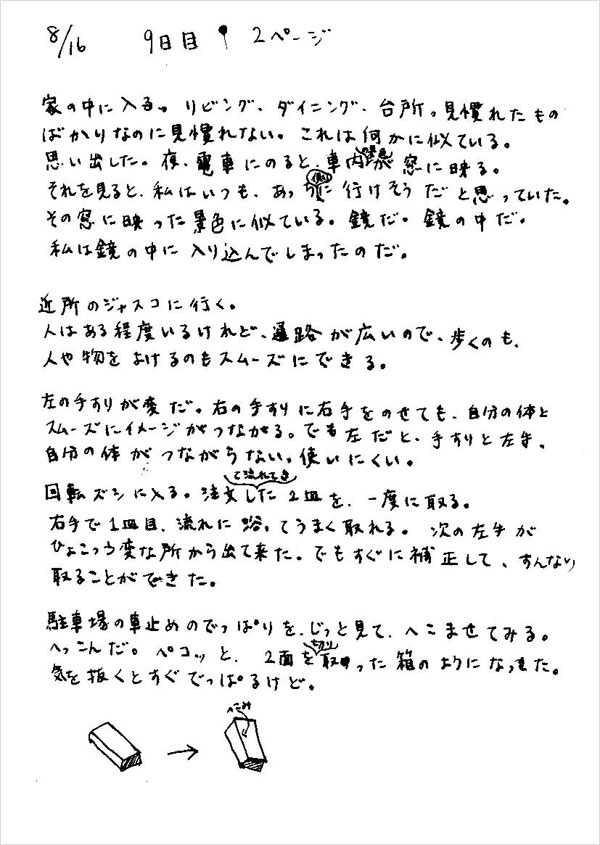 8/16 9日目 2ページ
家の中に入る。リビング、ダイニング、台所。見慣れたもの
ばかりなのに見慣れない。これは何かに似ている。
思い出した。夜、電車にのると、車内が窓に映る。
それを見ると、私はいつも、あっち側に行けそうだと思っていた。
その窓に映った景色に似ている。鏡だ。鏡の中だ。
私は鏡の中に入り込んでしまったのだ。
近所のジャスコに行く。
人はある程度いるけれど、通路が広いので、歩くのも、
人や物をよけるのもスムーズにできる。
左の手すりが変だ。右の手すりに右手をのせても、自分の体と
スムーズにイメージがつながる。でも左だと、手すりと左手、
自分の体がつながらない。使いにくい。
回転ズシに入る。注文した て流れてき 2皿を、一度に取る。
右手で1皿目、流れに沿ってうまく取れる。次の左手が
ひょこっと変な所から出て来た。でもすぐに補正して、すんなり
取ることができた。
駐車場の車止めのでっぱりを、じっと見て、へこませてみる。
へっこんだ。ペコッと、2面を切り取った箱のようになった。
気を抜くとすぐでっぱるけど。
へこみ
→